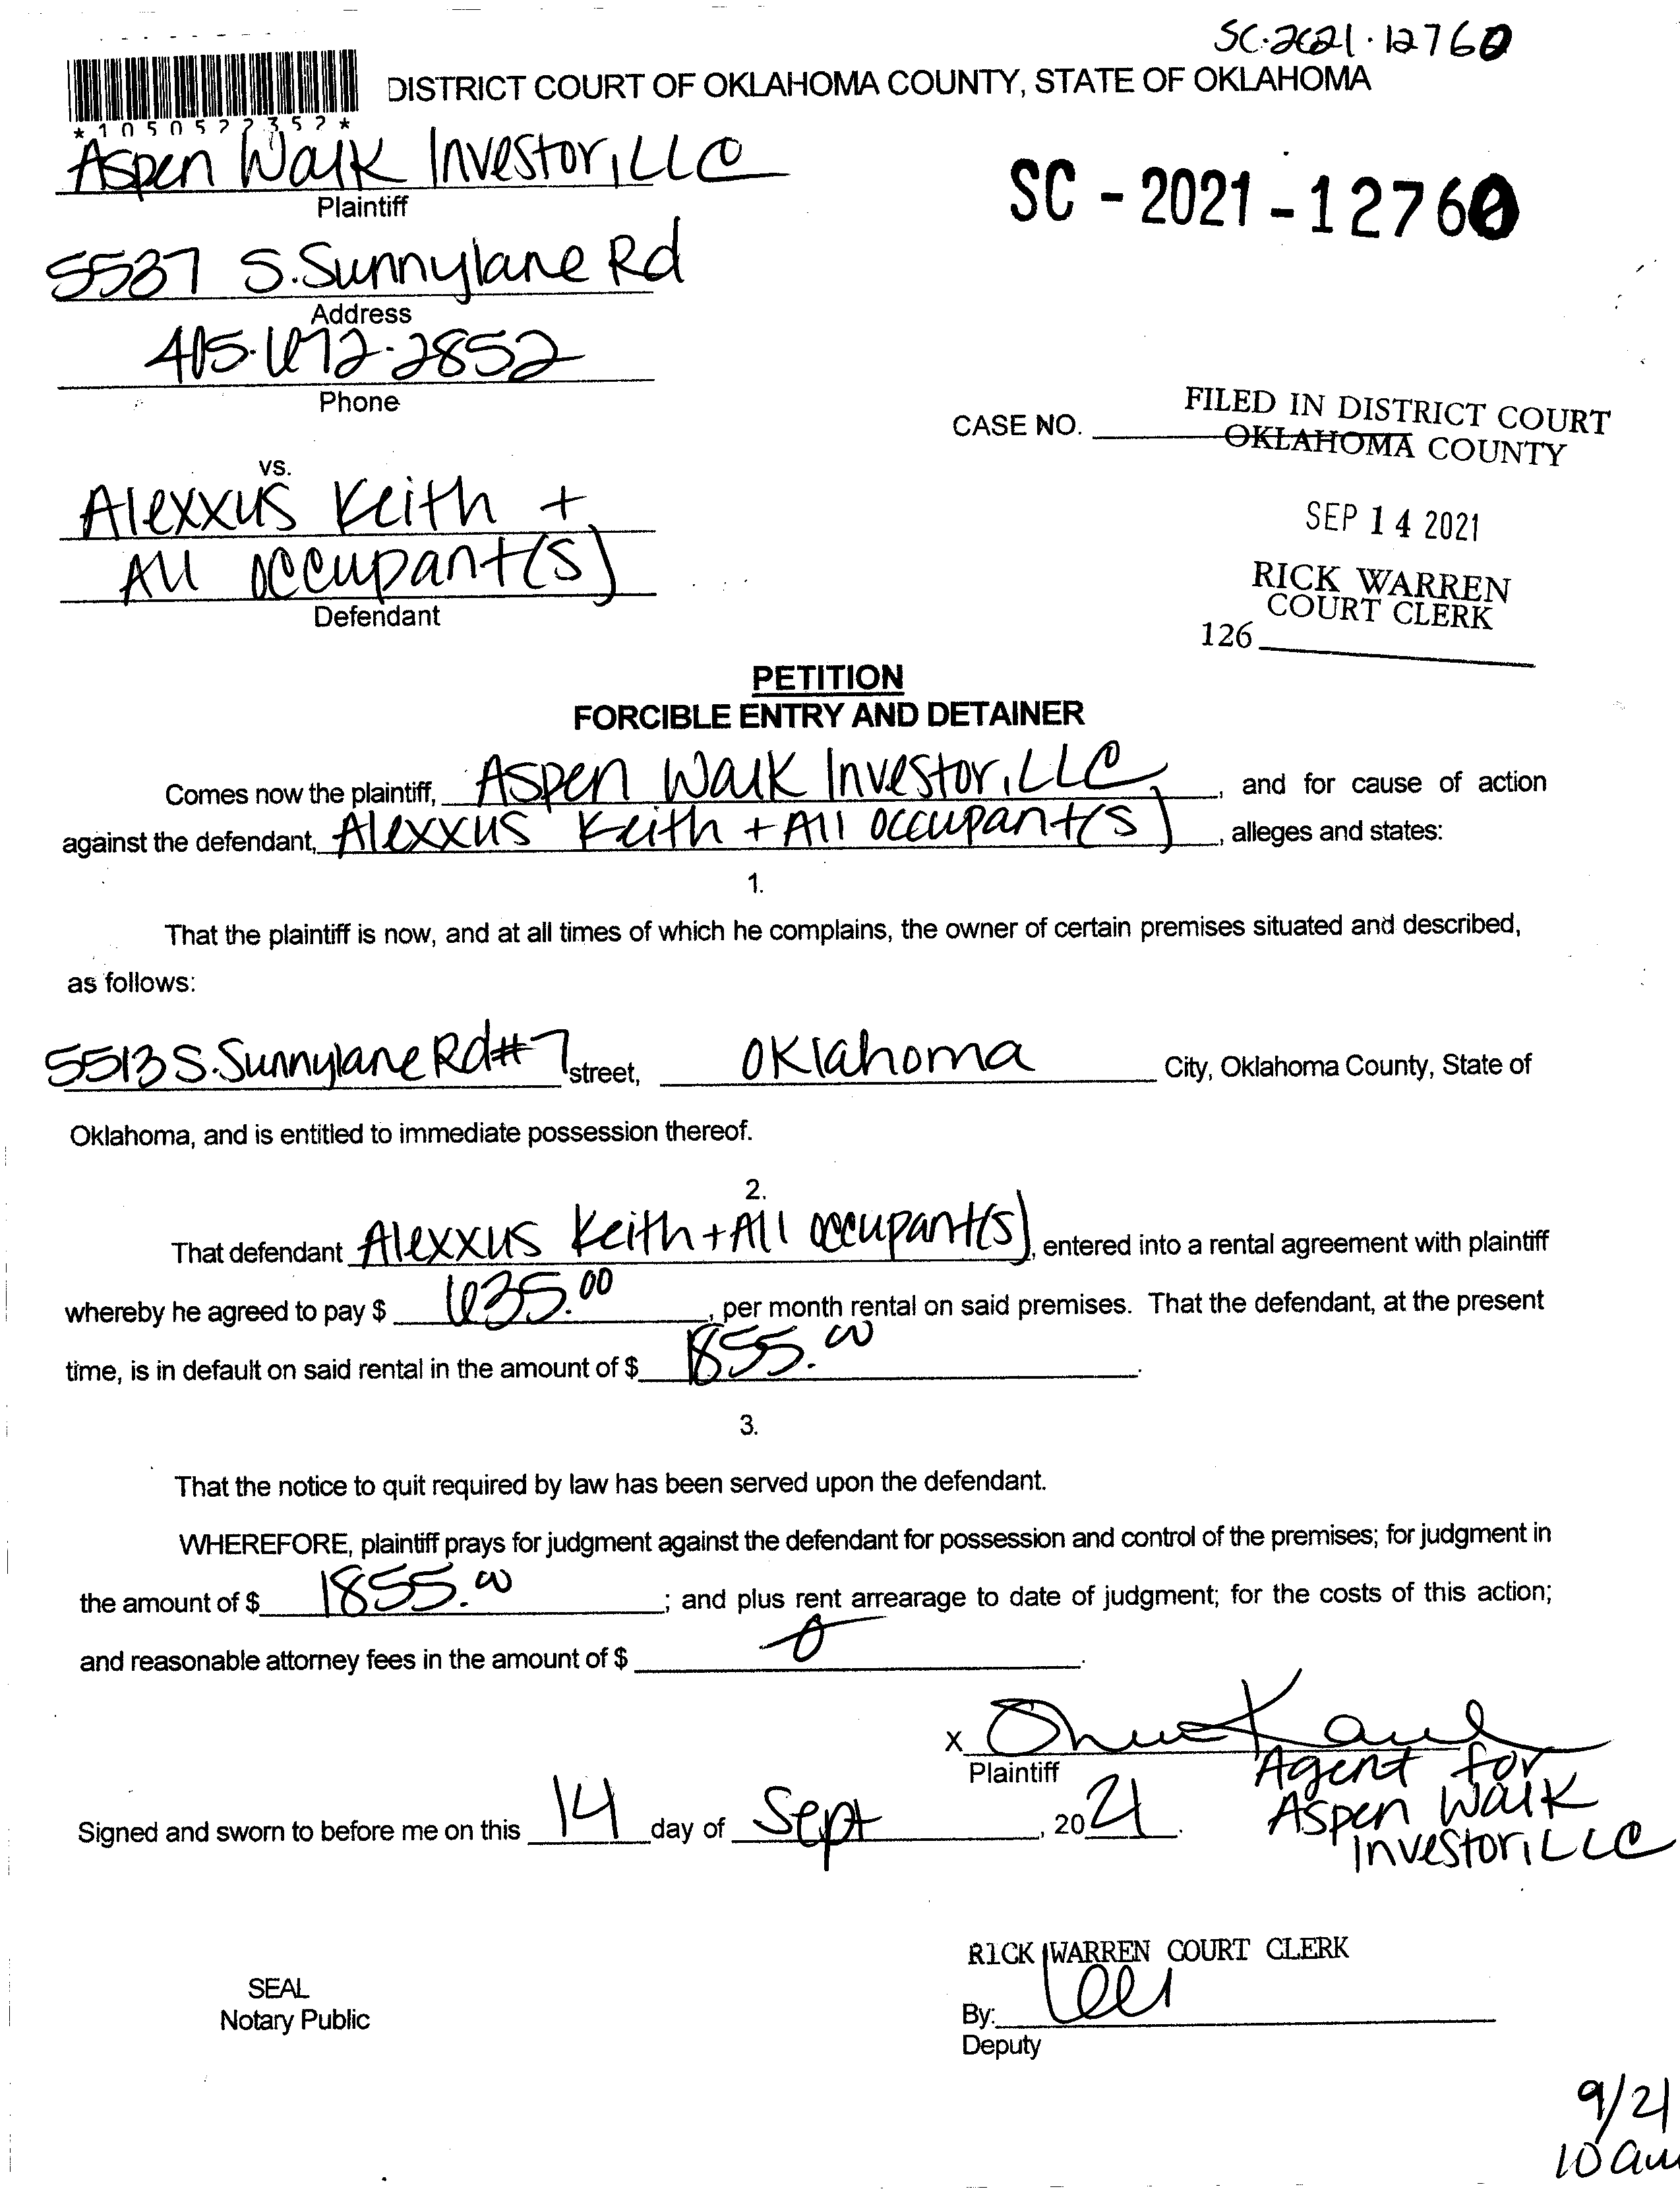 SC-2021-12760
DISTRICT COURT OF OKLAHOMA COUNTY, STATE OF OKLAHOMA
*1050522352*
Aspen Walk Investor, LLC
Plaintiff
SC - 2021 - 12760
5537 S. Sunnylane Rd
Address
405-672-2852
Phone
CASE NO.
FILED IN DISTRICT COURT
OKLAHOMA COUNTY
vs.
Alexxus Keith +
All occupant(s)
Defendant
SEP 14 2021
RICK WARREN
COURT CLERK
126
PETITION
FORCIBLE ENTRY AND DETAINER
Comes now the plaintiff, Aspen Walk Investor, LLC, and for cause of action
against the defendant, Alexxus Keith + All occupant(s), alleges and states:
1.
That the plaintiff is now, and at all times of which he complains, the owner of certain premises situated and described,
as follows:
5513 S. Sunnylane Rd #7 street, Oklahoma City, Oklahoma County, State of
Oklahoma, and is entitled to immediate possession thereof.
2.
That defendant Alexxus Keith + All occupant(s), entered into a rental agreement with plaintiff
whereby he agreed to pay $ 635.00, per month rental on said premises. That the defendant, at the present
time, is in default on said rental in the amount of $ 1855.00.
3.
That the notice to quit required by law has been served upon the defendant.
WHEREFORE, plaintiff prays for judgment against the defendant for possession and control of the premises; for judgment in
the amount of $ 1855.00; and plus rent arrearage to date of judgment; for the costs of this action;
and reasonable attorney fees in the amount of $ 0.
X
Plaintiff
Agent for
Aspen Walk
Investor, LLC
Signed and sworn to before me on this 14 day of Sept, 2021.
RICK WARREN COURT CLERK
SEAL
Notary Public
By:
Deputy
9/21
10 am